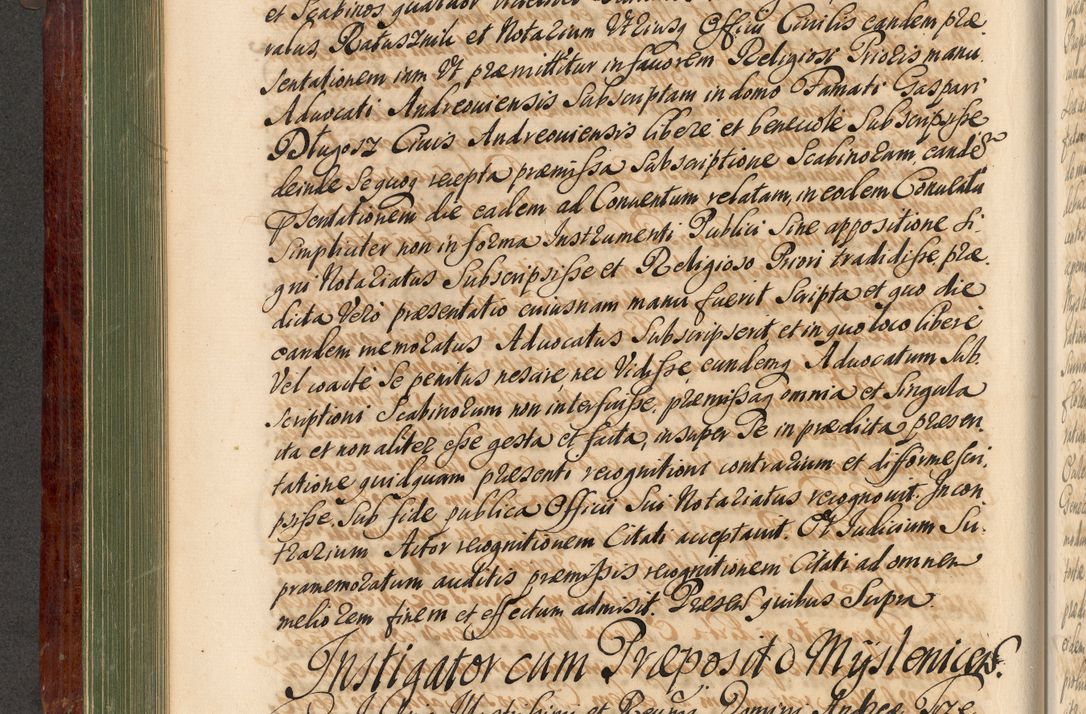 et Scabinos quatuor
ratus, Ratusznik et Notarium Utriusq Officii Civilis eandem præ
sentationem jam Ut præmittitur in favorem Religiosi Prioris manu
Advocati Andreoviensis Subscriptam in domo Famati Gaspari
Długosz Civis Andreoviensis libere et benevole Subscripsisse
deinde Se quoq recepta præmissa Subscriptione Scabinorum, eande
pr̃sentationem die eadem ad Conventum relatam, in eodem Conventu
Simpliciter non in forma Instrumenti Publici Sine appositione Si-
gni Notariatus Subscripsisse et Religioso Priori tradidisse, præ-
dicta Vero præsentatio cuiusnam manu fuerit Scripta et quo die
eandem memoratus Advocatus Subscripserit, et in quo loco libere
Vel coacte Se penitus nescire, nec Vidisse, eundemq Advocatum Sub-
scriptioni Scabinorum non interfuisse, præmissaq omnia et Singula
ita et non aliter esse gesta et facta, insuper Se in prædicta præsen-
tatione quidquam præsenti recognitioni contrarium et difforme scri-
psisse, Sub fide publica Officii Sui Notariatus recognovit. In con-
trarium Actor recognitionem Citati acceptavit. Et Judicium Su-
pramemoratum auditis præmissis recognitionem Citati ad omnem
meliorem finem et effectum admisit. Presen quibus Supra.
Instigator cum Præposito Myslenicen.
et Domini Andreæ